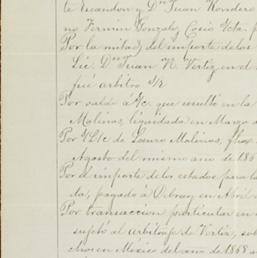 te Escandon y Dn Juan Rondero
no Fermin Gonzalez Cosio Vta. p
Por la mitad del importe de los
Lic. Dn Juan N. Vertiz en el
fué arbitro S/R
Por saldo á /c. que resultó en la
Molinos, liquidada en Marzo d
Por de Lauro Molinos, fhas.
Agosto del mismo año de 186
Por el importe de los estados para la
da, pagado á en Abril d
Por transaccion particular en
sujetó al arbitrage de Vertiz, sob
chos en México del año de 1868 a